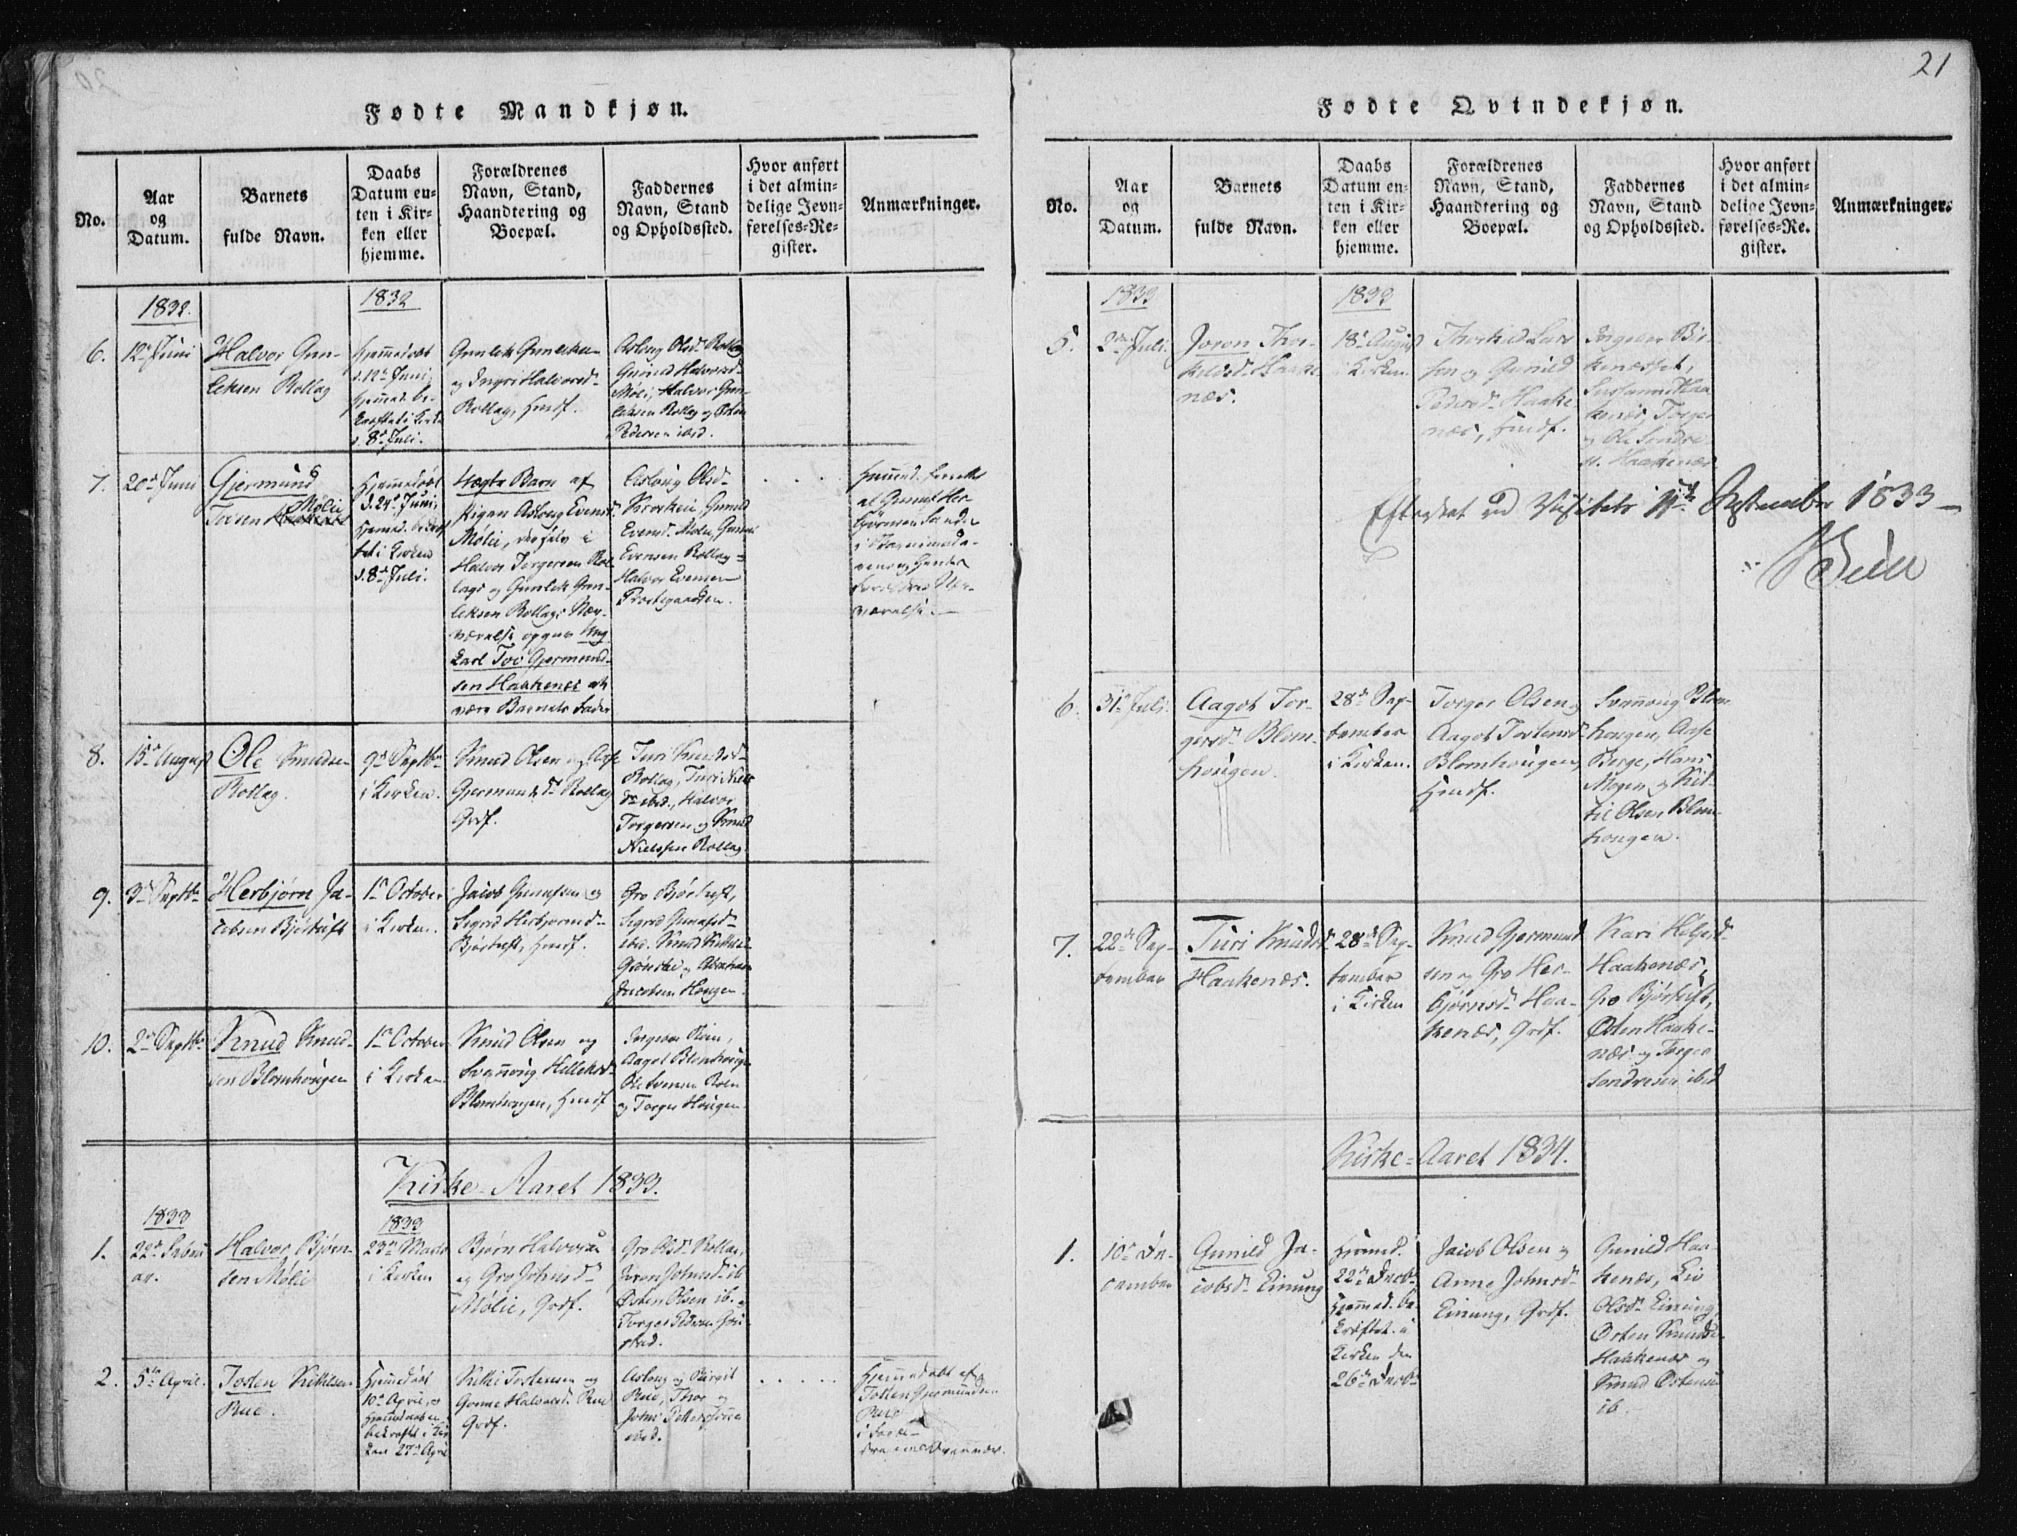 21
Fødte Mandkjøn.
No.
Aar
og
Datum.
Barnets
fulde Navn.
Daabs
Datum en-
ten i Kir-
ken eller
hjemme.
Forældrenes
Navn, Stand,
Haandtering og
Boepæl.
Faddernes
Navn, Stand
og Opholdssted.
Hvor anført
i det almin-
delige Jevn-
førelses-Re-
gister.
Anmærkninger.
1832.
1832
6.
12te Juni
Halvor Gun-
leksen Rollag
Hjemmedøbt
d. 12te Juni,
hjemmed. be-
kræftet i Kirke
d. 8de Juli.
Gunlek Gunleksen
og Ingri Halvorsd.
Rollag, Huusf.
Aslaug Olsd. Rollag
Gunild Halvorsd.
Møli, Halvor Gun-
leksen Rollag og Østen
Pedersen ibid.
7.
20de Juni
Gjermund
Møli
Toesen
Hjemmedøbt
d. 24de Juni,
hjemmed. bekræf-
tet i Kirken
d. 8de Juli.
Uægte Barn af
Pigen Aslaug Evensd.
Mølie, der selv i
Halvor Torgersen Rol-
lags og Gunlek Gun-
leksen Rollags Nær-
værelse opgav Ung-
karl Tov Gjermund-
sen Haakenes at
være Barnets Fader
Aslaug Olsd.
Evensd. Mølie, Gunna
Evensen Rollag
Halvor Evensen
Præstegaarden.
. . . .
Hjemmed. forrettet
af
værelse.
8.
15de August
Ole Knudsen
Rollag.
9de Septbr
i Kirken.
Knud Olsen og Aase
Gjermundsd. Rollag
Grdf.
Turi Knudsd.
Rollag, Turi Niels
dr. ibid., Halvor
Torgersen og Knud
Nielssen Rollag.
9.
3de Septbr
Herbjørn Ja-
cobsen Bjørtuft
1te October
i Kirken.
Jacob Gunufsen og
Sigrid Herbjørnsd.
Bjørtuft, Huusf.
Gro Bjørtuft,
Sigrid Gunufsd.
ibid. Knud Kittilsen
Grønslie og Abraham
Jacobsen Haugen.
10.
2de Septbr
Knud Knud-
sen Blomhougen
1te October
i Kirken
Knud Olsen og
Svanoug Helleksd.
Blomhougen, Huusf
Ingebor
Aagot Blomhougen
Ole Svensen Roen
og Torger Hougen
Kirke-Aaret 1833.
1833
1833
1.
22de Febru
ar.
Halvor Bjørn-
sen Mølie
23de Marts
i Kirken
Bjørn Halvorsen
og Gro Johnsd.
Mølie, Grdf.
Gro Olsd. Rollag,
Joran Johnsd. ib
Østen Olsen ib. og
Torger Pedersen
stad.
2.
5te April.
Tosten Kittilsen
Rue.
Hjemmedøbt
10de April, og
Hjemmedaaben
bekræftet i Kir
ken 27de April
Kittil Tostensen og
Gunne Halvorsd. Rue
Grdf.
Aslaug og Birgit
Rue, Thor og
John
ibid.
. . . . .
Hjemmedøbt af
Tosten Gjermundsen
Rue
Fødte Qvindekjøn.
No.
Aar
og
Datum.
Barnets
fulde Navn.
Daabs
Datum en-
ten i Kir-
ken eller
hjemme.
Forældrenes
Navn, Stand,
Haandtering og
Boepæl.
Faddernes
Navn, Stand
og Opholdssted.
Hvor anført
i det almin-
delige Jevn-
førelses-Re-
gister.
Anmærkninger.
1833
1833
5.
2den Juli.
Joron Thor-
kildsd. Haake
næs.
18de August
i Kirken
Thorkild Lars
sen og Gunild
Pedersd. Haake
næs, Huusf.
Ingebor Bir-
kenæsset,
Susanna Haa
kenæs, Torger
og Ole Sondre-
s. Haakenæs.
Efterseet ved Visitats 11te September 1833
6.
31te Juli.
Aagot Tor-
gersd. Blom-
hougen.
28de Sep-
tember
i Kirken.
Torger Olsen og
Aagot Tostensd.
Blomhougen,
Huusf.
Svanoug Blom
hougen, Aase
Berge, Hans
Mogen og Kit-
til Olsen Blom
hougen.
7.
22de Sep-
tember
Turi Knudsd.
Haakenæs.
28de Sep-
tember
i Kirken
Knud Gjermund
sen og Gro Her-
bjørnsd. Haa-
kenæs, Grdf.
Kari Helgesd.
Haakenæs,
Gro Bjørtuft,
Østen Haake-
næs og Torger
Sondresen ibid
Kirke-Aaret 1834.
1.
10de De-
cember
Gunild Ja-
cobsd. Einung
Hjemmed.
22de Decbr
Hjemmed. be-
kræftet i
Kirken den
26de Decbr
Jacob Olsen og
Anne Johnsd.
Einung, Grdf.
Gunild Haa-
kenæs, Liv
Olsd. Einung,
Østen Knudsen
Haakenæs og
Knud Østensen
ib.